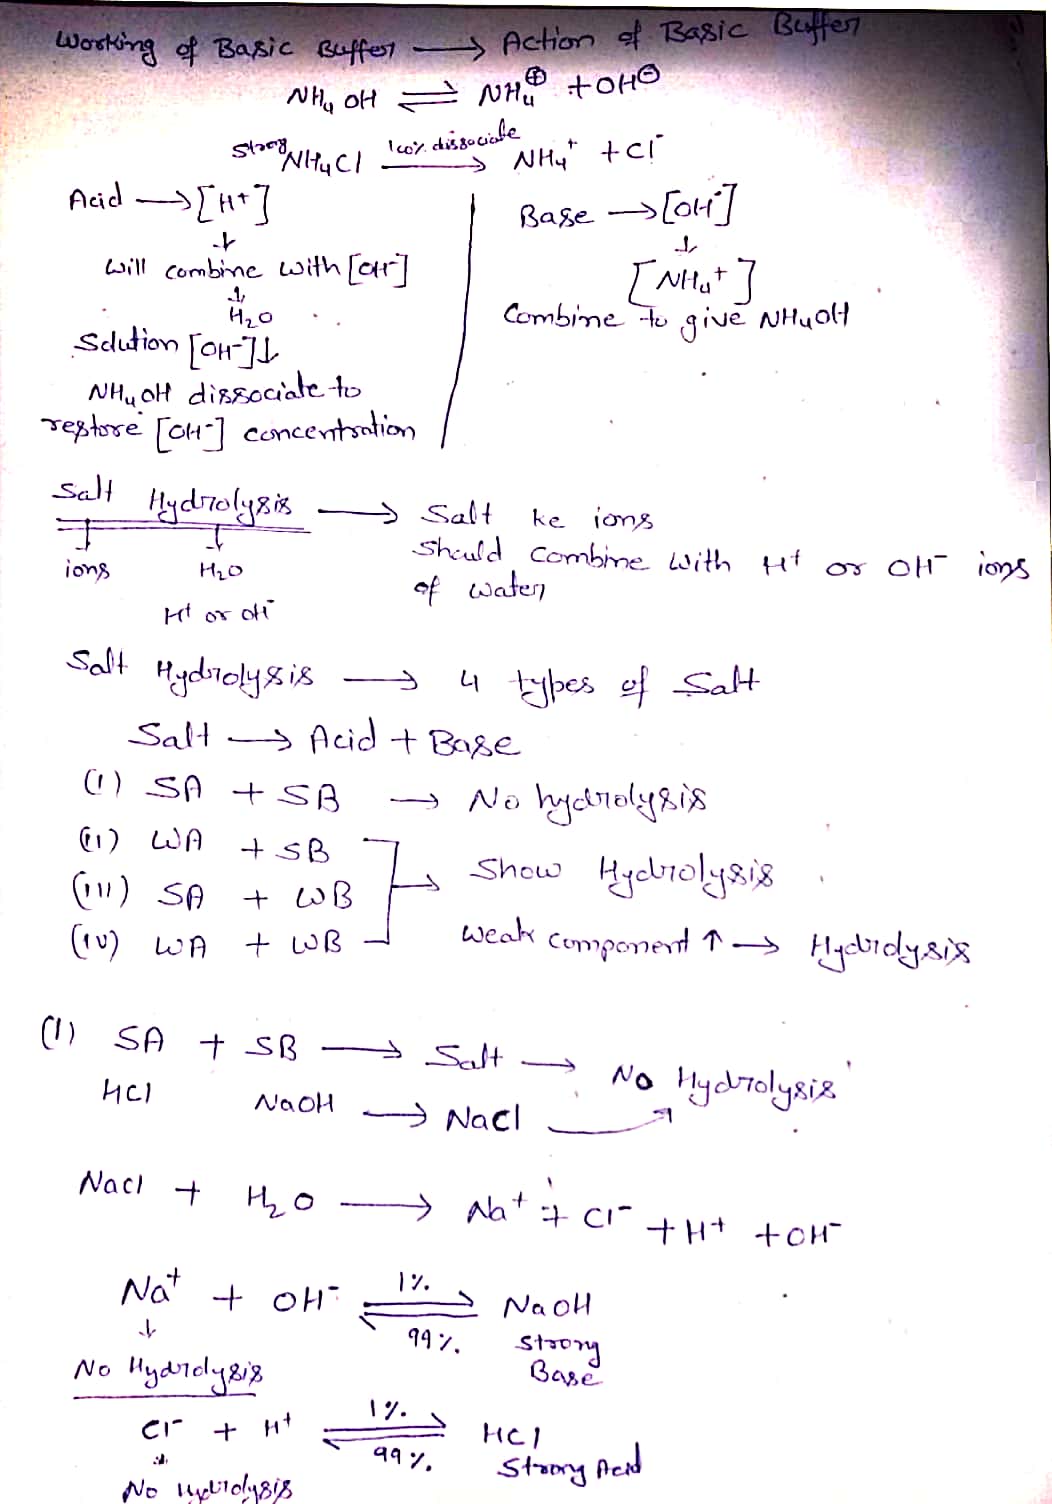 Working of Basic Buffer → Action of Basic Buffer
NH₄OH ⇌ NH₄⊕ + OH⊖
Strong NH₄Cl 100% dissociate → NH₄⁺ + Cl⁻
Acid → [H⁺]
↓
will combine with [OH⁻]
↓
H₂O
Solution [OH⁻]↓
NH₄OH dissociate to
restore [OH⁻] concentration
Base → [OH⁻]
↓
[NH₄⁺]
Combine to give NH₄OH
Salt Hydrolysis → Salt ke ions
should combine with H⁺ or OH⁻ ions
of water
ions H₂O
H⁺ or OH⁻
Salt Hydrolysis → 4 types of Salt
Salt → Acid + Base
(i) SA + SB → No hydrolysis
(ii) WA + SB
(iii) SA + WB
(iv) WA + WB
→ Show Hydrolysis
Weak component ↑ → Hydrolysis
(1) SA + SB → Salt → No Hydrolysis
HCl NaOH → NaCl
NaCl + H₂O → Na⁺ + Cl⁻ + H⁺ + OH⁻
Na⁺ + OH⁻ 1% ⇌ 99% NaOH
↓ Strong
No Hydrolysis Base
Cl⁻ + H⁺ 1% ⇌ 99% HCl
↓ Strong Acid
No Hydrolysis